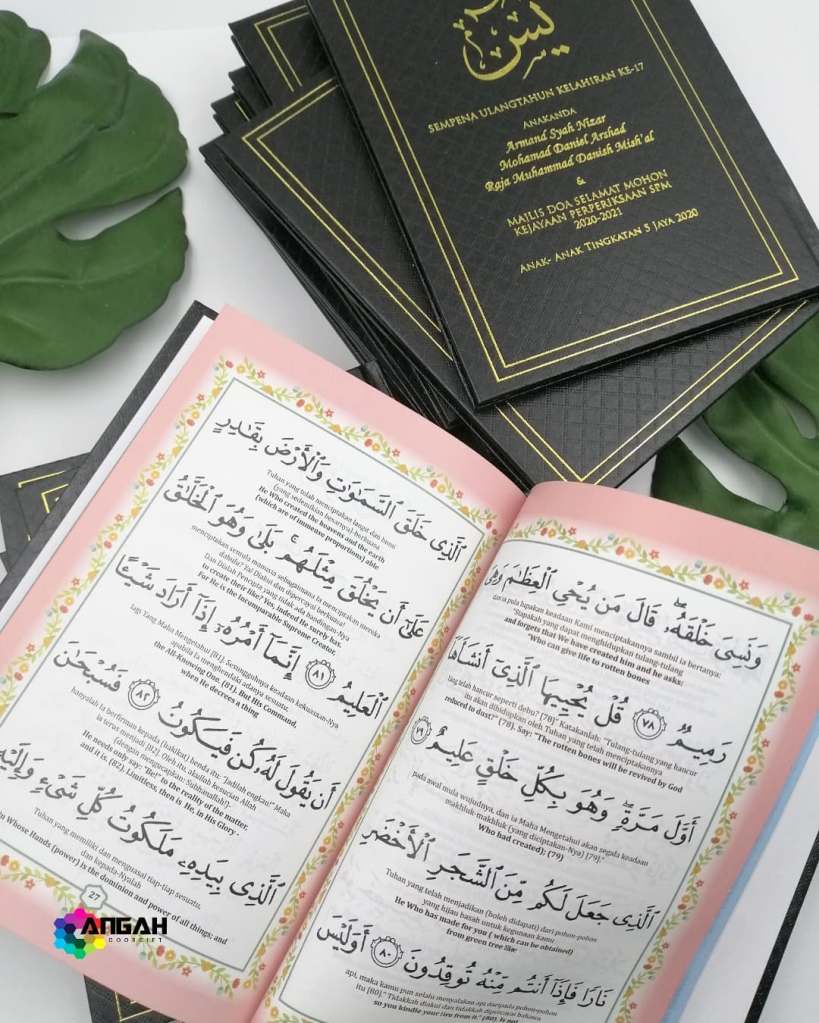 يس
SEMPENA ULANGTAHUN KELAHIRAN KE-17
ANAKANDA
Armand Syah Nizar
Mohamad Daniel Arshad
Raja Muhammad Danish Mish'al
&
MAJLIS DOA SELAMAT MOHON
KEJAYAAN PERPERIKSAAN SPM
2020-2021
ANAK- ANAK TINGKATAN 5 JAYA 2020
وَنَسِىَ خَلْقَهُۥ ۖ قَالَ مَن يُحْىِ ٱلْعِظَٰمَ وَهِىَ
pula lupakan keadaan Kami menciptakannya sambil ia bertanya:
"Siapakah yang dapat menghidupkan tulang-tulang
and forgets that We have created him and he asks:
"Who can give life to rotten bones
رَمِيمٌ ٧٨ قُلْ يُحْيِيهَا ٱلَّذِىٓ أَنشَأَهَآ
yang telah hancur seperti debu? [78]" Katakanlah: "Tulang-tulang yang hancur
itu akan dihidupkan oleh Tuhan yang telah menciptakannya
reduced to dust?" (78). Say: "The rotten bones will be revived by God
أَوَّلَ مَرَّةٍ ۖ وَهُوَ بِكُلِّ خَلْقٍ عَلِيمٌ ٧٩
pada awal mula wujudnya, dan ia Maha Mengetahui akan segala keadaan
makhluk-makhluk (yang diciptakan-Nya) [79]."
Who had created); (79)
ٱلَّذِى جَعَلَ لَكُم مِّنَ ٱلشَّجَرِ ٱلْأَخْضَرِ
Tuhan yang telah menjadikan (boleh didapati) dari pohon-pohon
yang hijau basah untuk kegunaan kamu
He Who has made for you ( which can be obtained)
from green tree like
نَارًا فَإِذَآ أَنتُم مِّنْهُ تُوقِدُونَ ٨٠ أَوَلَيْسَ
api, maka kamu pun selalu menyalakan api daripada pohon-pohon
itu [80]." Tidakkah diakui dan tidakkah dipercayai bahawa
so you kindle your fire from it." (80). Is not
ٱلَّذِى خَلَقَ ٱلسَّمَٰوَٰتِ وَٱلْأَرْضَ بِقَٰدِرٍ
Tuhan yang telah menciptakan langit dan bumi
(yang sedemikian besarnya) berkuasa
He Who created the heavens and the earth
(which are of immense proportions) able
عَلَىٰٓ أَن يَخْلُقَ مِثْلَهُم ۚ بَلَىٰ وَهُوَ ٱلْخَلَّٰقُ
menciptakan semula manusia sebagaimana Ia menciptakan mereka
dahulu? Ya! Diakui dan dipercayai berkuasa!
Dan Dialah Pencipta yang tidak ada bandingan-Nya
to create their like? Yes, indeed He surely has.
For He is the Incomparable Supreme Creator,
ٱلْعَلِيمُ ٨١ إِنَّمَآ أَمْرُهُۥٓ إِذَآ أَرَادَ شَيْـًٔا
lagi Yang Maha Mengetahui [81]. Sesungguhnya keadaan kekuasaan-Nya
apabila Ia menghendaki adanya sesuatu,
the All-Knowing One. (81). But His Command,
when He decrees a thing
أَن يَقُولَ لَهُۥ كُن فَيَكُونُ ٨٢ فَسُبْحَٰنَ
hanyalah Ia berfirman kepada (hakikat) benda itu: "Jadilah engkau!" Maka
ia terus menjadi [82]. Oleh itu akuilah kesucian Allah
(dengan mengucapkan: Subhanallah!)-
He needs only say: "Be!" to the reality of the matter,
and it is. (82). Limitless, then is He, in His Glory :
ٱلَّذِى بِيَدِهِۦ مَلَكُوتُ كُلِّ شَىْءٍ وَإِلَيْهِ
Tuhan yang memiliki dan menguasai tiap-tiap sesuatu,
dan kepada-Nyalah
In Whose Hands (power) is the dominion and power of all things; and
27
ANGAH
DOORGIFT